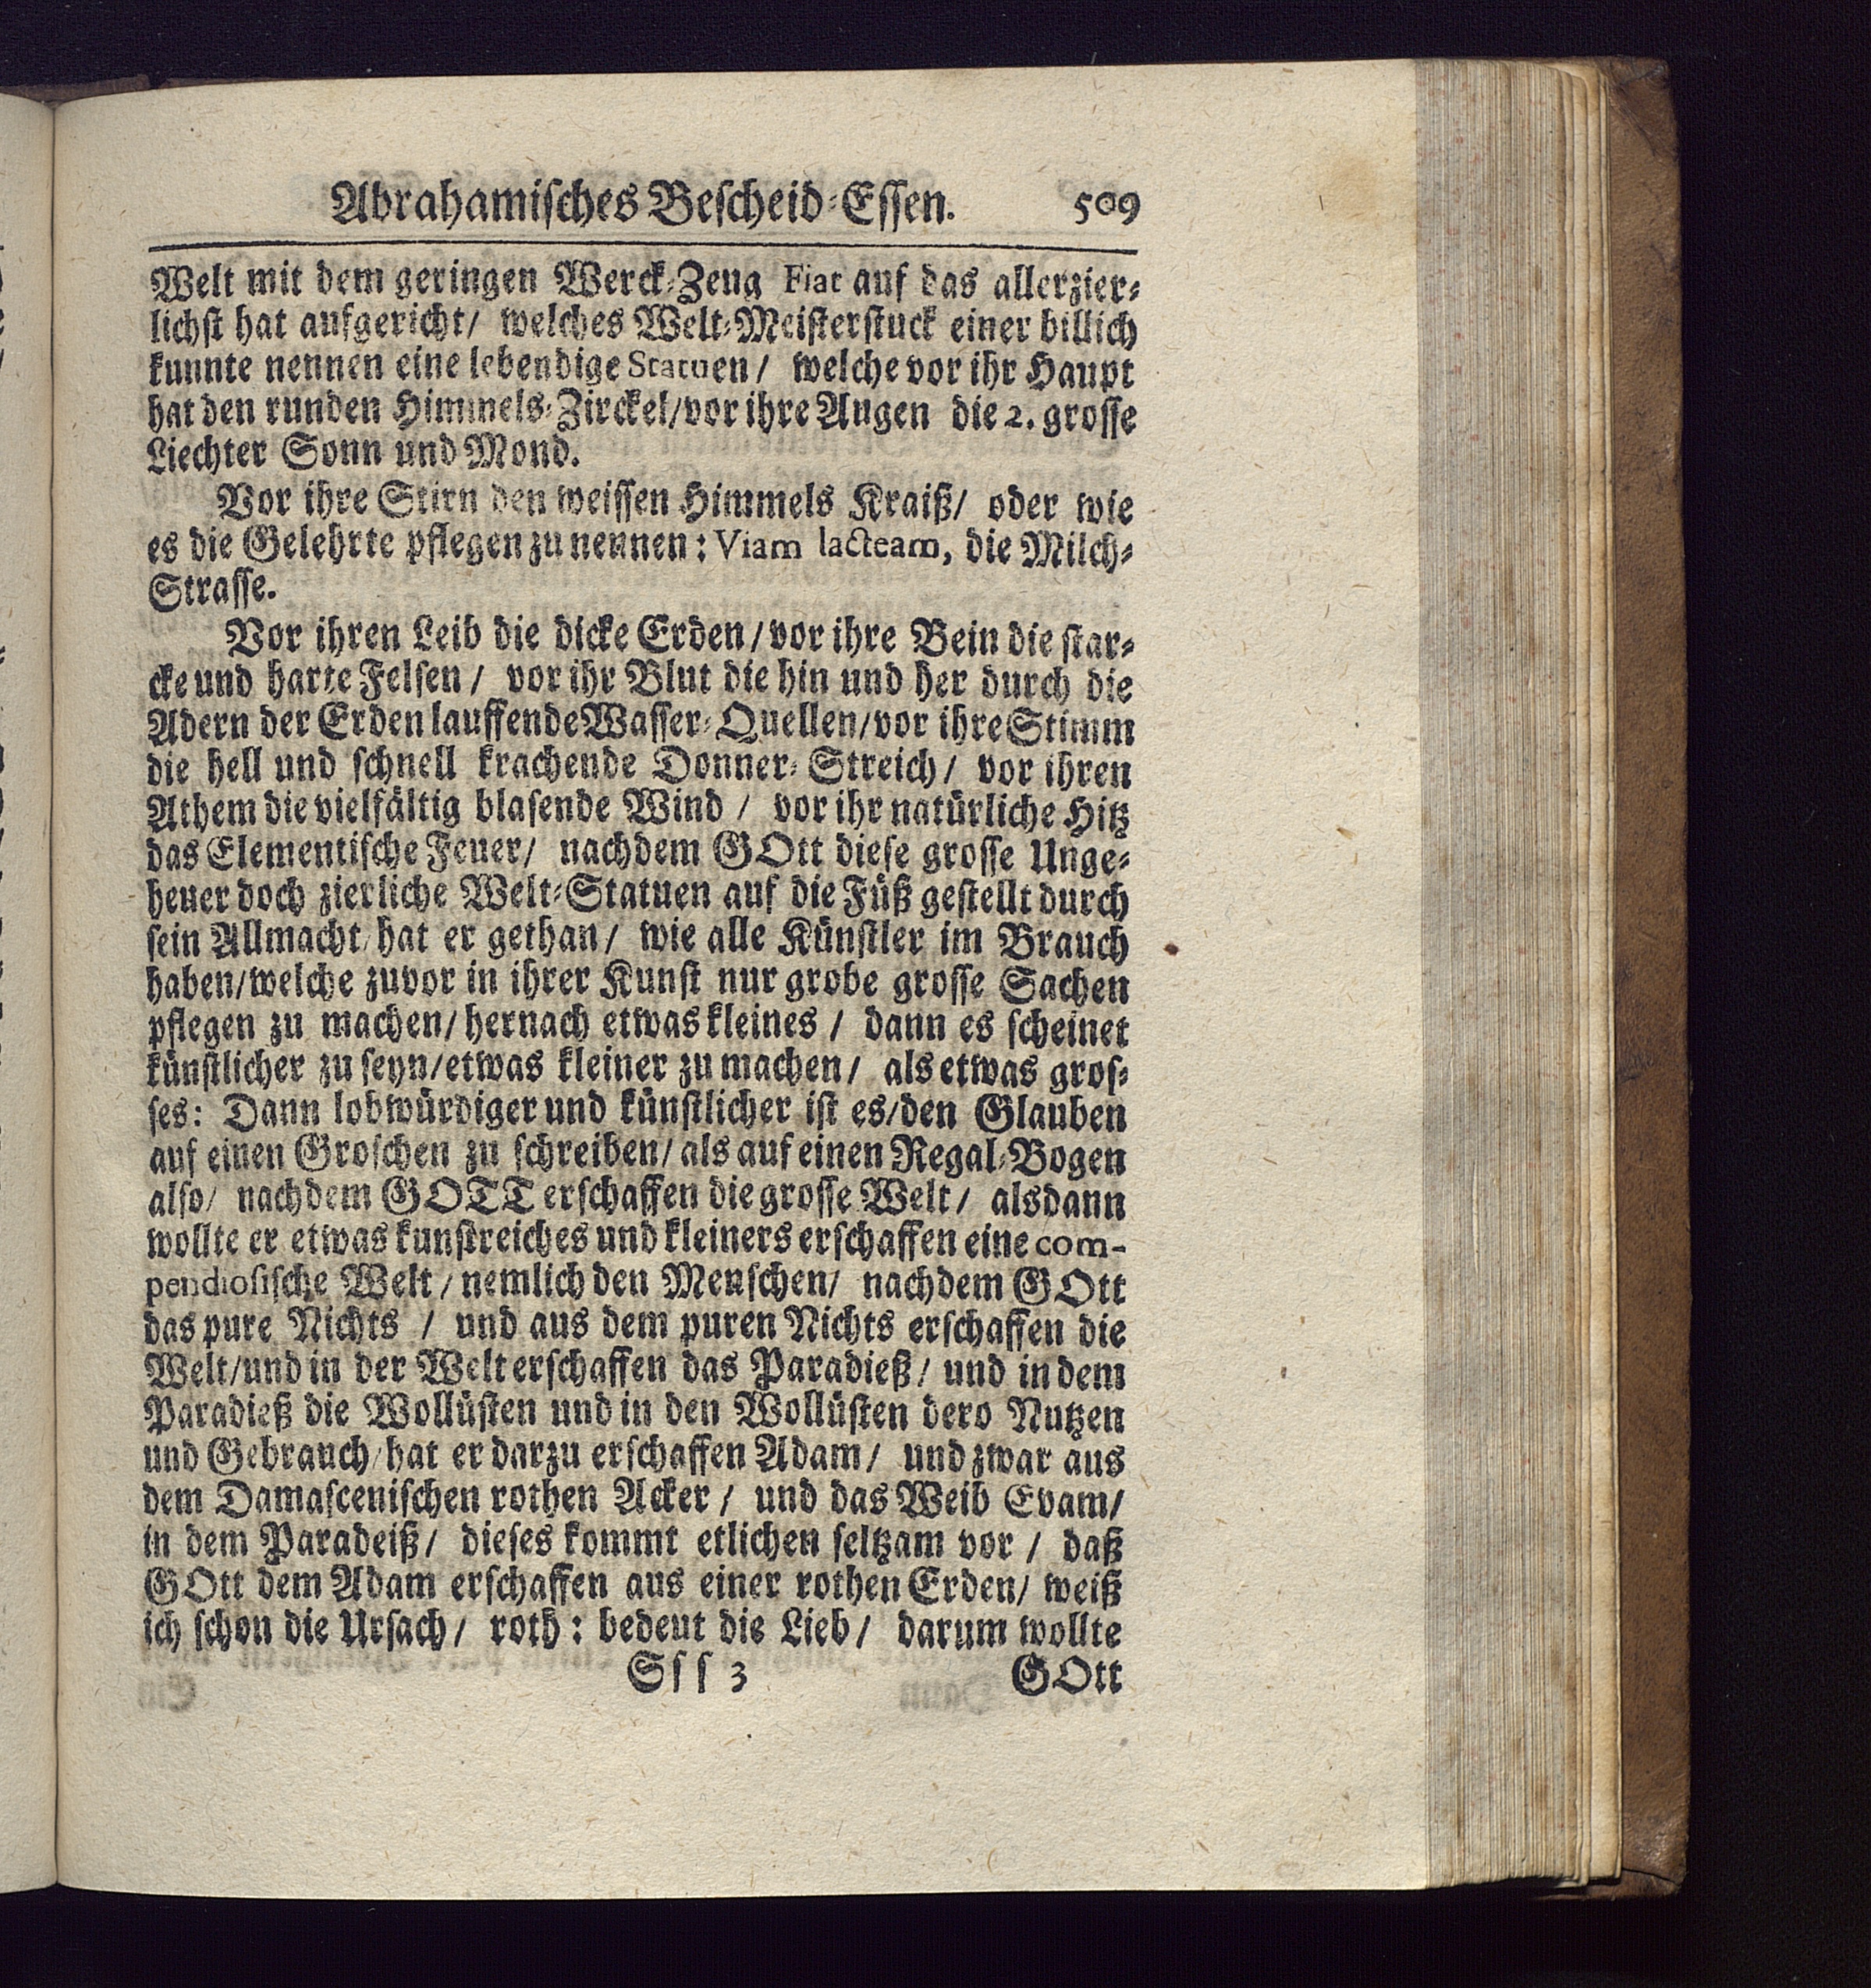 Abrahamisches Bescheid-Essen. 509
Welt mit dem geringen Werck-Zeug Fiat auf das allerzier-
lichst hat aufgericht/ welches Welt-Meisterstuck einer billich
kunnte nennen eine lebendige Statuen/ welche vor ihr Haupt
hat den runden Himmels-Zirckel/vor ihre Augen die 2. grosse
Liechter Sonn und Mond.
Vor ihre Stirn den weissen Himmels Kraiß/ oder wie
es die Gelehrte pflegen zu nennen: Viam lacteam, die Milch-
Strasse.
Vor ihren Leib die dicke Erden/vor ihre Bein die star-
cke und harte Felsen/ vor ihr Blut die hin und her durch die
Adern der Erden lauffende Wasser-Quellen/vor ihre Stimm
die hell und schnell krachende Donner-Streich/ vor ihren
Athem die vielfältig blasende Wind / vor ihr natürliche Hitz
das Elementische Feuer/ nachdem GOtt diese grosse Unge-
heuer doch zierliche Welt-Statuen auf die Füß gestellt durch
sein Allmacht/hat er gethan/ wie alle Künstler im Brauch
haben/welche zuvor in ihrer Kunst nur grobe grosse Sachen
pflegen zu machen/hernach etwas kleines / dann es scheinet
künstlicher zu seyn/etwas kleiner zu machen/ als etwas gros-
ses: Dann lobwürdiger und künstlicher ist es/den Glauben
auf einen Groschen zu schreiben/als auf einen Regal-Bogen
also/ nachdem GOTT erschaffen die grosse Welt/ alsdann
wollte er etwas kunstreiches und kleiners erschaffen eine com-
pendiosische Welt/nemlich den Menschen/ nachdem GOtt
das pure Nichts / und aus dem puren Nichts erschaffen die
Welt/und in der Welt erschaffen das Paradieß/ und in dem
Paradieß die Wollüsten und in den Wollüsten dero Nutzen
und Gebrauch/hat er darzu erschaffen Adam/ und zwar aus
dem Damascenischen rothen Acker/ und das Weib Evam/
in dem Paradeiß/ dieses kommt etlichen seltzam vor / daß
GOtt dem Adam erschaffen aus einer rothen Erden/ weiß
ich schon die Ursach/ roth: bedeut die Lieb/ darum wollte
Sss 3 GOtt